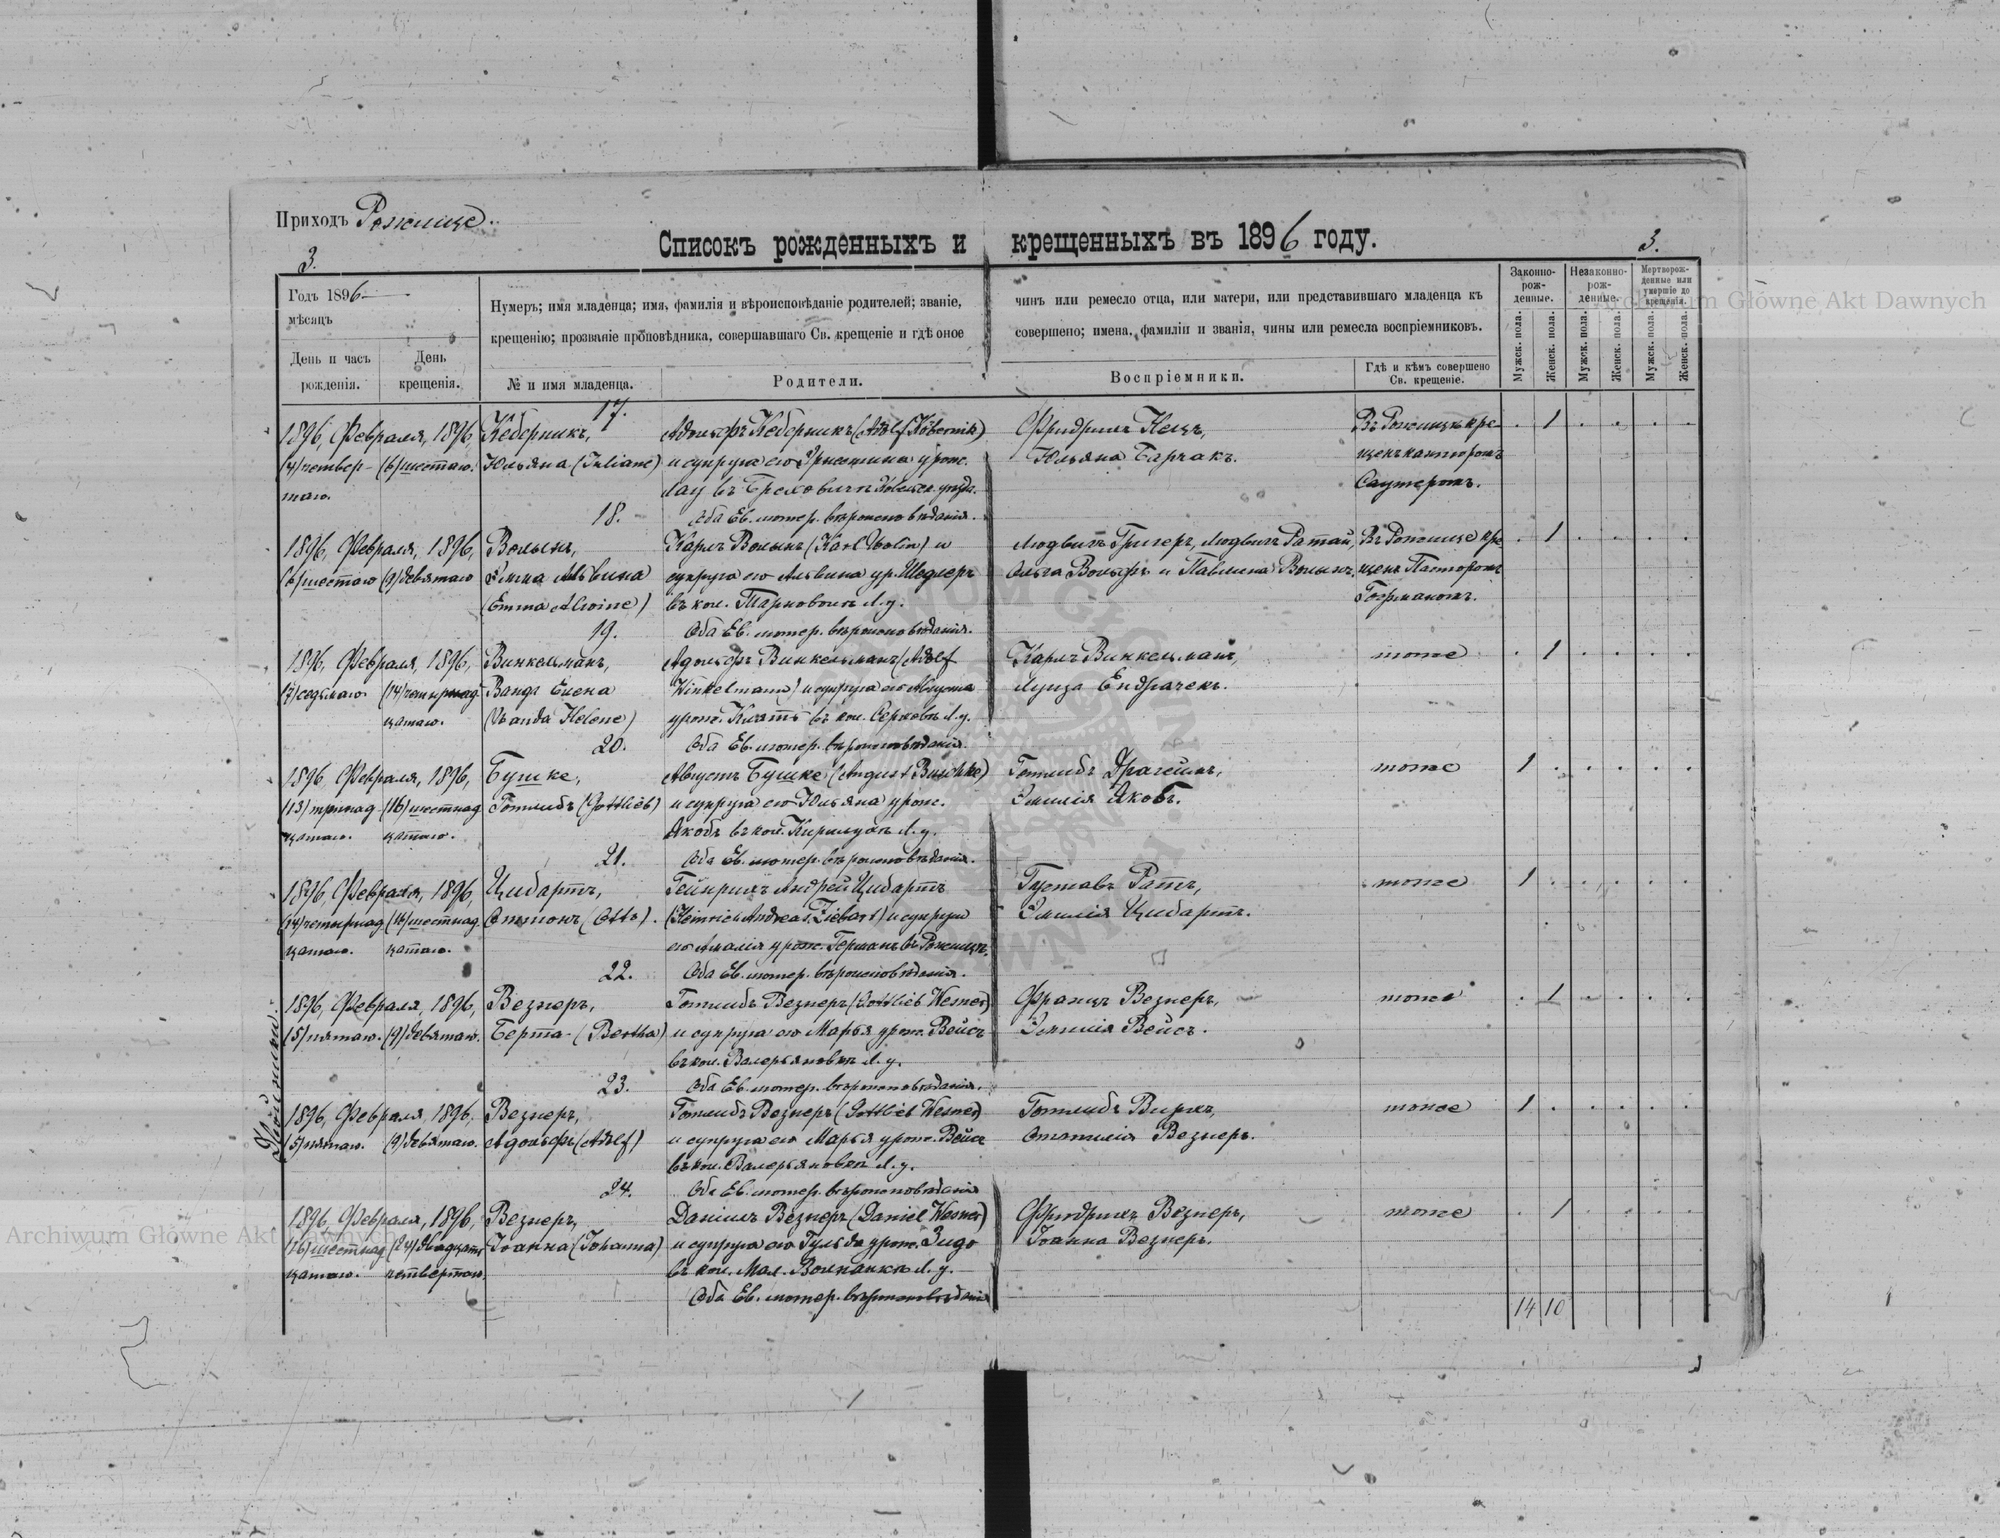 Приходъ Рожище.
Списокъ рожденныхъ и крещенныхъ въ 1896 году.
3. 3.
Годъ 1896
мѣсяцъ
День и часъ рожденія.
День крещенія.
Нумеръ; имя младенца; имя, фамилія и вѣроисповѣданіе родителей; званіе, чинъ или ремесло отца, или матери, или представившаго младенца къ
крещенію; прозваніе проповѣдника, совершавшаго Св. крещеніе и гдѣ оное совершено; имена, фамиліи и званія, чины или ремесла воспріемниковъ.
№ и имя младенца.
Родители.
Воспріемники.
Гдѣ и кѣмъ совершено Св. крещеніе.
Законно-рож-денные.
Незаконно-рож-денные.
Мертворож-денные или умершіе до крещенія.
Мужск. пола. Женск. пола. Мужск. пола. Женск. пола. Мужск. пола. Женск. пола.
17.
1896, Февраля, 1896, Кёберникъ, Адольфъ Кёберникъ (Adolf Köbernik) Фридрихъ Въ Рожищѣ кре- 1
(4) четвер- (6) шестаго. Юльяна (Juliane) и супруга его Эрнестина урож. Юльяна Барчакъ. щенъ канторомъ
таго. Лау въ уѣзда. Саутеромъ.
18. Оба Ев. лютер. вѣроисповѣданія.
1896, Февраля, 1896, Волынъ, Карлъ Волынъ (Karl Wolin) и Людвигъ Григеръ, Людвигъ Ратай, Въ Рожище кре- 1
(6) шестаго (9) девятаго Эмма Альвина супруга его Альвина ур. Шедлеръ Ольга Вольфъ и Павлина Волынъ. щенъ Пасторомъ
(Emma Alwine) въ кол. Тарноволѣ Л. у. Гофманомъ.
19. Оба Ев. лютер. вѣроисповѣданія.
1896, Февраля, 1896, Винкельманъ, Адольфъ Винкельманъ (Adolf Карлъ Винкельманъ, тоже 1
(7) седьмаго (14) четырнад- Ванда Елена Winkelmann) и супруга его Августа Луиза Ендрачекъ.
цатаго. (Wanda Helene) урож. въ кол. Л. у.
20. Оба Ев. лютер. вѣроисповѣданія.
1896, Февраля, 1896, Бушке, Августъ Бушке (August Buschke) Готлибъ Драгеймъ, тоже 1
(13) тринад- (16) шестнад- Готлибъ (Gottlieb) и супруга его Юльяна урож. Эмилія Якобъ.
цатаго. цатаго. Якобъ въ кол. Л. у.
21. Оба Ев. лютер. вѣроисповѣданія.
1896, Февраля, 1896, Цибартъ, Гейнрихъ Андрей Цибартъ Густавъ Ратъ, тоже 1
(14) четырнад- (16) шестнад- (Otto). (Heinrich Andreas Ziebart) и супруга Эмилія Цибартъ.
цатаго. цатаго. его Амалія урож. Германъ въ Рожищѣ.
22. Оба Ев. лютер. вѣроисповѣданія.
1896, Февраля, 1896, Везнеръ, Готлибъ Везнеръ (Gottlieb Wesner) Францъ Везнеръ, тоже 1
(5) пятаго. (9) девятаго. Берта (Bertha) и супруга его Марья урож. Вейсъ Эмилія Вейсъ.
въ кол. Валерьяновкѣ Л. у.
23. Оба Ев. лютер. вѣроисповѣданія.
1896, Февраля, 1896. Везнеръ, Готлибъ Везнеръ (Gottlieb Wesner) Готлибъ Вирхъ, тоже 1
(5) пятаго. (9) девятаго. Адольфъ (Adolf) и супруга его Марья урож. Вейсъ Оттилія Везнеръ.
въ кол. Валерьяновкѣ Л. у.
24. Оба Ев. лютер. вѣроисповѣданія
1896, Февраля, 1896, Везнеръ, Даніилъ Везнеръ (Daniel Wesner) Фридрихъ Везнеръ, тоже 1
(16) шестнад- (24) двадцать Іоанна (Johanna) и супруга его Гульда урож. Зидо Іоанна Везнеръ.
цатаго. четвертаго. въ кол. Мал. Волнянкѣ Л. у.
Оба Ев. лютер. вѣроисповѣданія
14 10
Двойники.
Archiwum Główne Akt Dawnych
Archiwum Główne Akt Dawnych